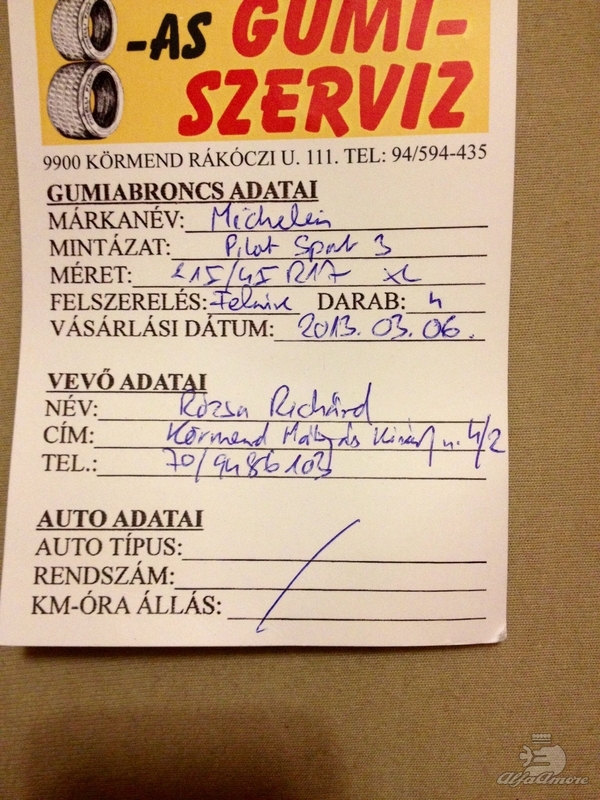 -AS GUMI-
SZERVIZ
9900 KÖRMEND RÁKÓCZI U. 111. TEL: 94/594-435
GUMIABRONCS ADATAI
MÁRKANÉV: Michelin
MINTÁZAT: Pilot Sport 3
MÉRET: 215/45 R17 XL
FELSZERELÉS: Felnire DARAB: 4
VÁSÁRLÁSI DÁTUM: 2013. 03. 06.
VEVŐ ADATAI
NÉV: Rózsa Richárd
CÍM: Körmend Mátyás Király u. 4/2
TEL.: 70/9486103
AUTO ADATAI
AUTO TÍPUS:
RENDSZÁM:
KM-ÓRA ÁLLÁS:
AlfaAmore